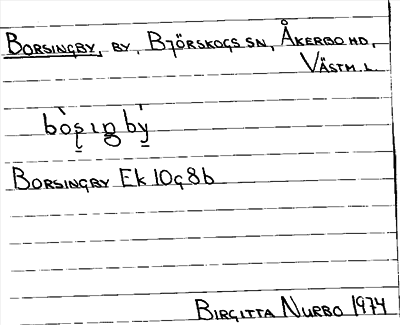 BORSINGBY, BY, BJÖRSKOGS SN, ÅKERBO HD,
VÄSTM. L.
BORSINGBY Ek 10g8b
BIRGITTA NURBO 1974